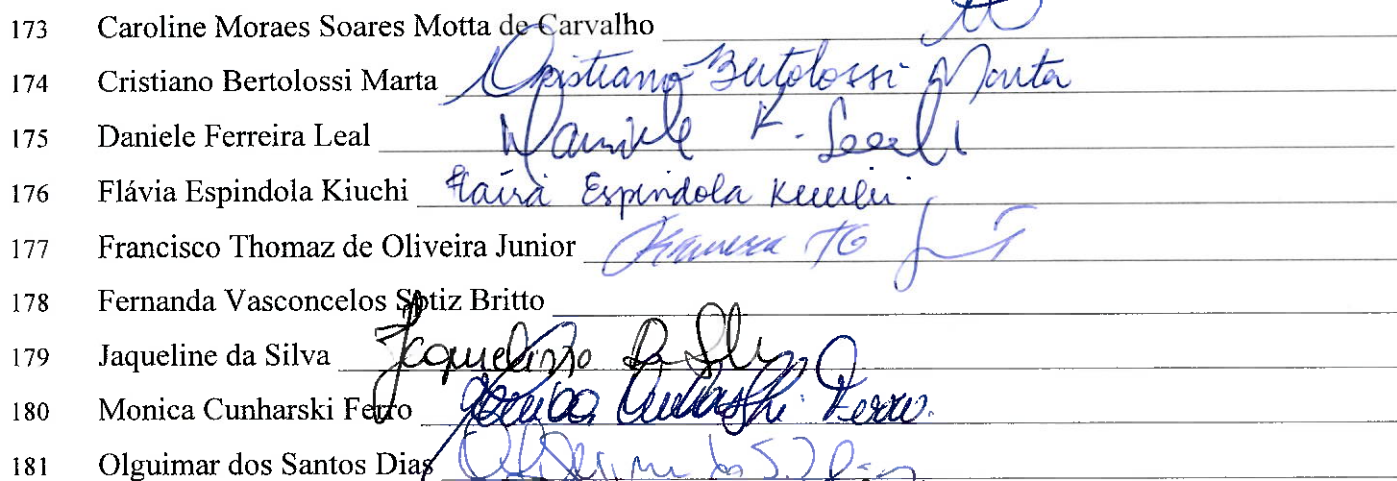 173 Caroline Moraes Soares Motta de Carvalho
174 Cristiano Bertolossi Marta Cristiano Bertolossi Marta
175 Daniele Ferreira Leal Daniele F. Leal
176 Flávia Espindola Kiuchi Flávia Espindola Kiuchi
177 Francisco Thomaz de Oliveira Junior
178 Fernanda Vasconcelos Sptiz Britto
179 Jaqueline da Silva Jaqueline da Silva
180 Monica Cunharski Ferro Ferro.
181 Olguimar dos Santos Dias